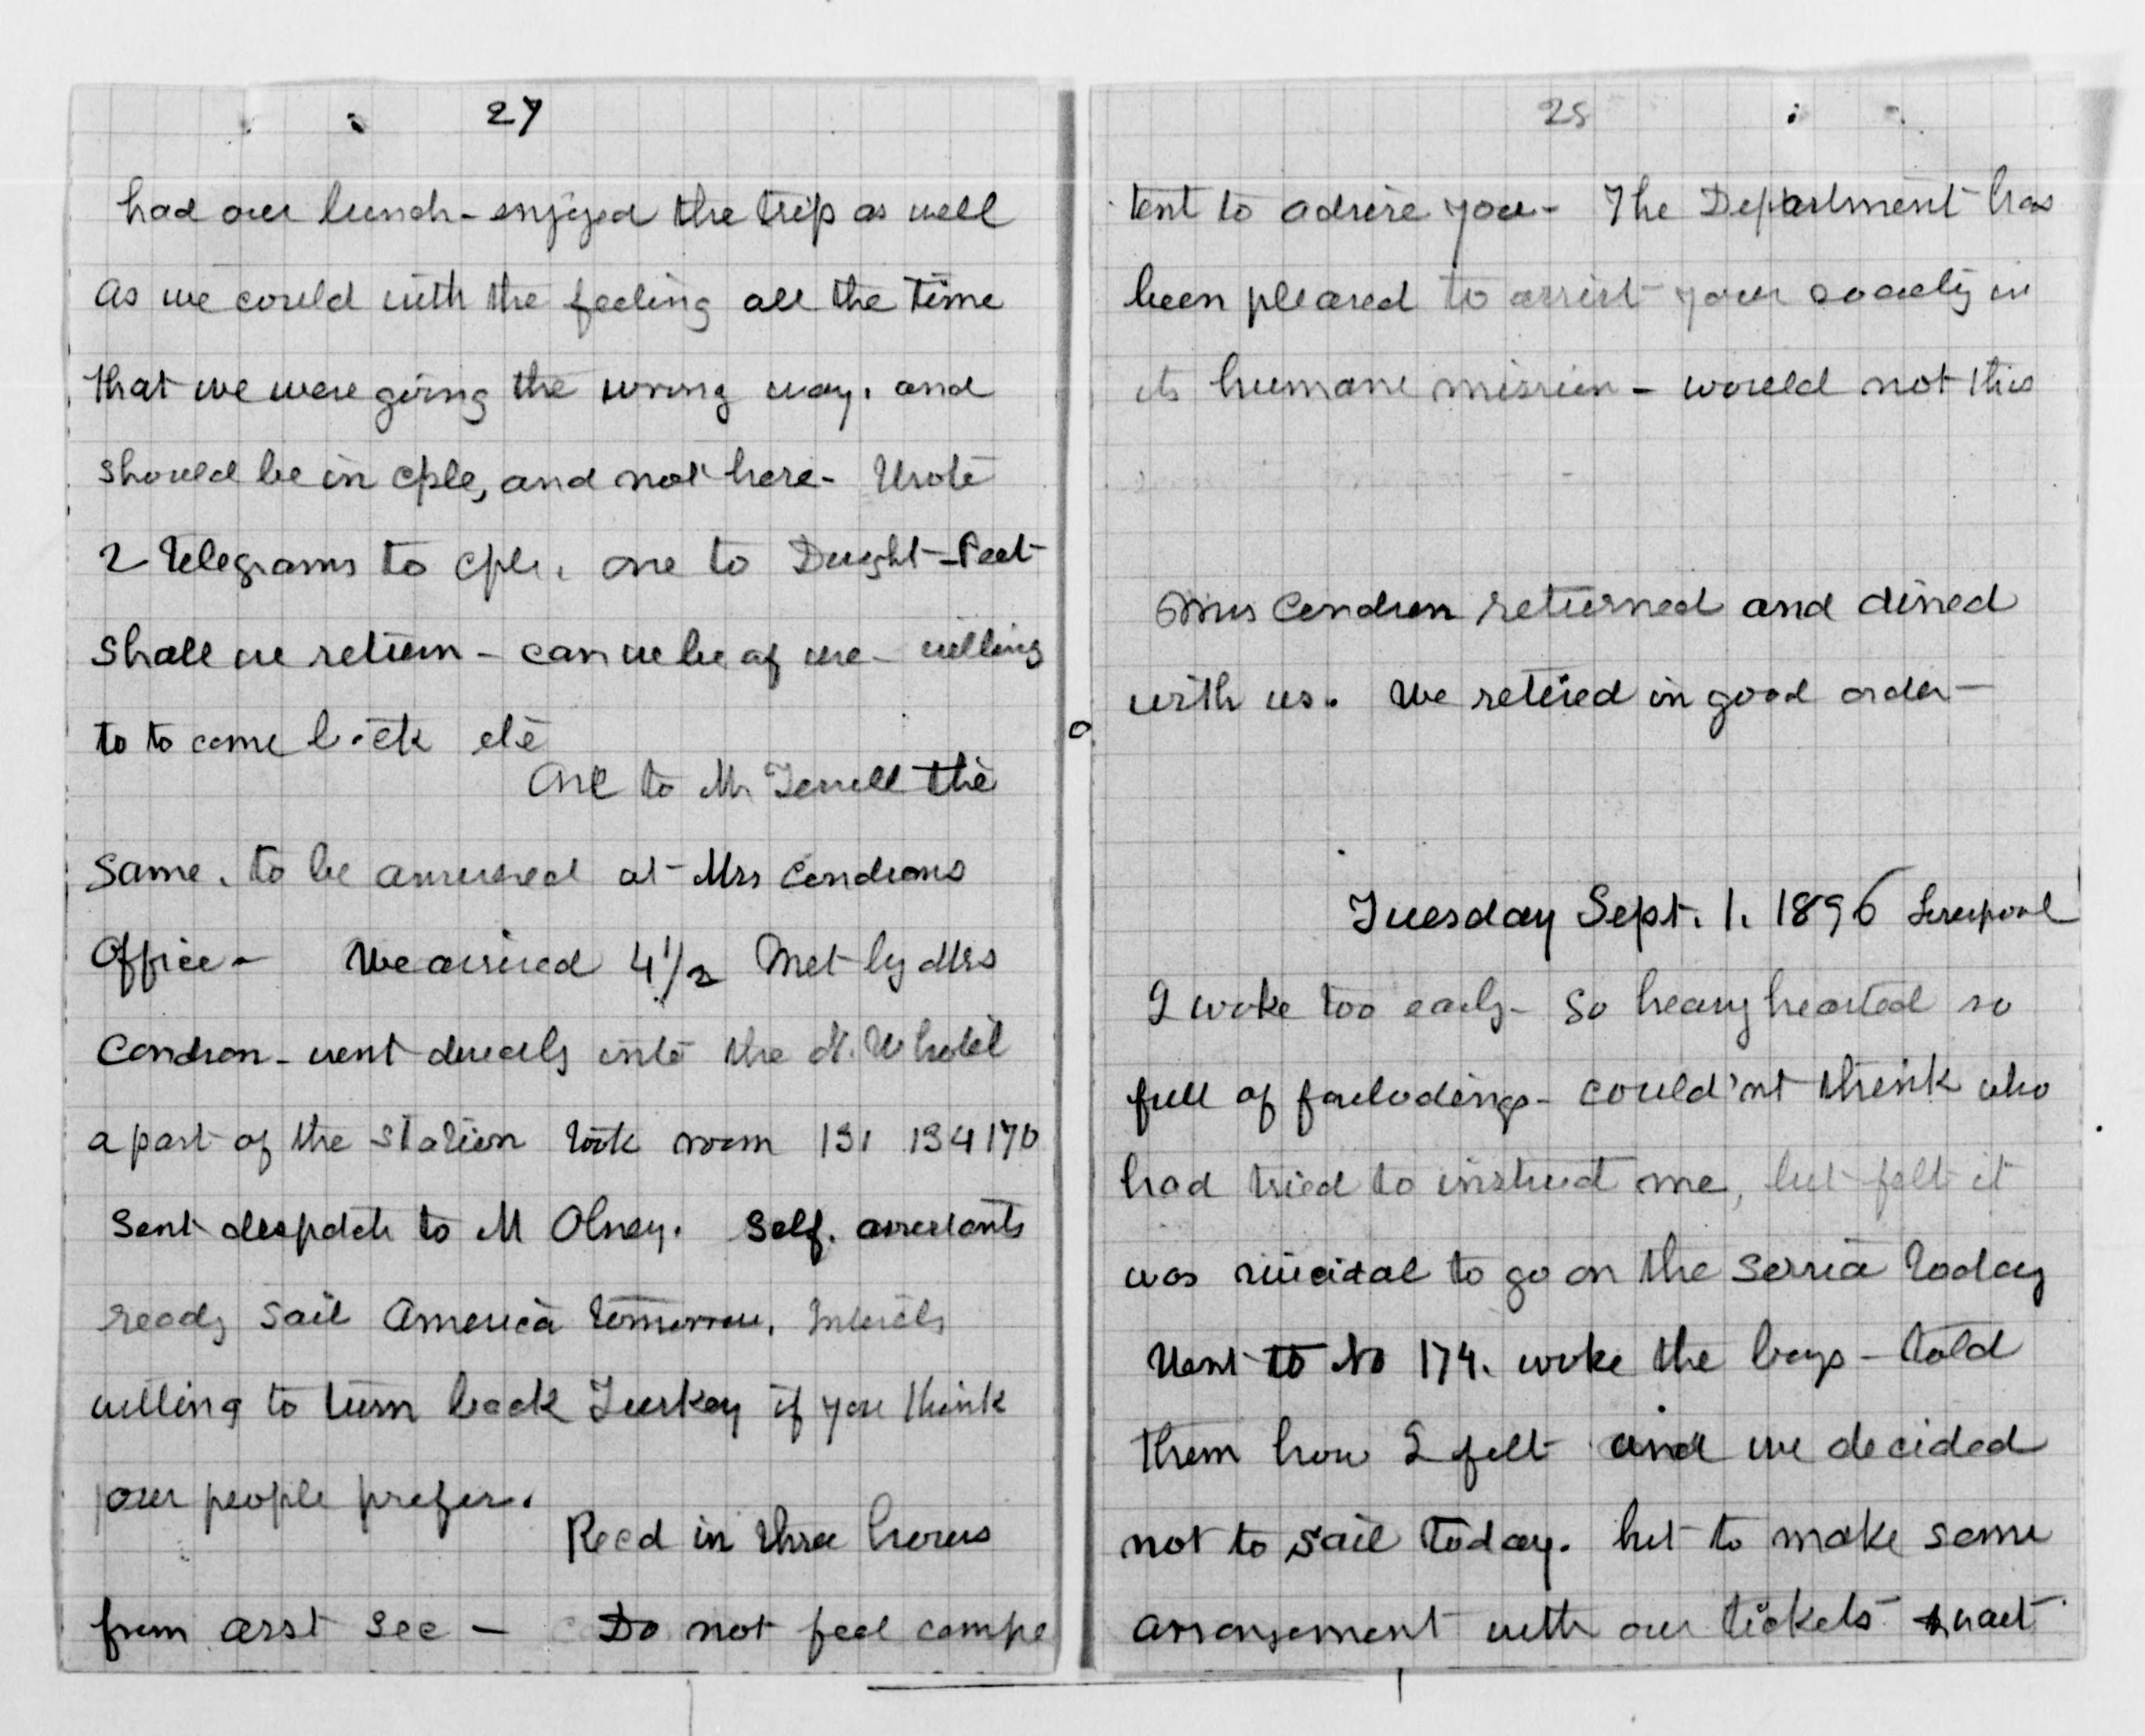 27
had our lunch - enjoyed the trip as well
as we could with the feeling all the time
that we were going the wrong way. and
should be in Cple, and not here - Wrote
2 telegrams to Cple. one to Dwight - Peet
Shall we return - can we be of use - willing
to to come back etc
One to Mr Terrell the
same. to be answered at Mrs Condrons
Office - We arrived 4 1/2 Met by Mrs
Condron - went directly into the N. W hotel
a part of the station took room 131 134 170
Sent despatch to M Olney. Self. assistants
ready sail America tomorrow.
willing to turn back Turkey if you think
our people prefer.
Recd in three hours
from asst Sec - Do not feel compe
28
tent to advise you - The Department has
been pleased to assist your society in
its humane mission - would not this
Mrs Condron returned and dined
with us. We retired in good order -
Tuesday Sept. 1. 1896 Liverpool
I woke too early - So heavy hearted so
full of forbodings - could'nt think who
had tried to instruct me, but felt it
was suicidal to go on the Servia today
Went to No 174. woke the boys - told
them how I felt and we decided
not to sail today. but to make some
arrangement with our tickets & wait